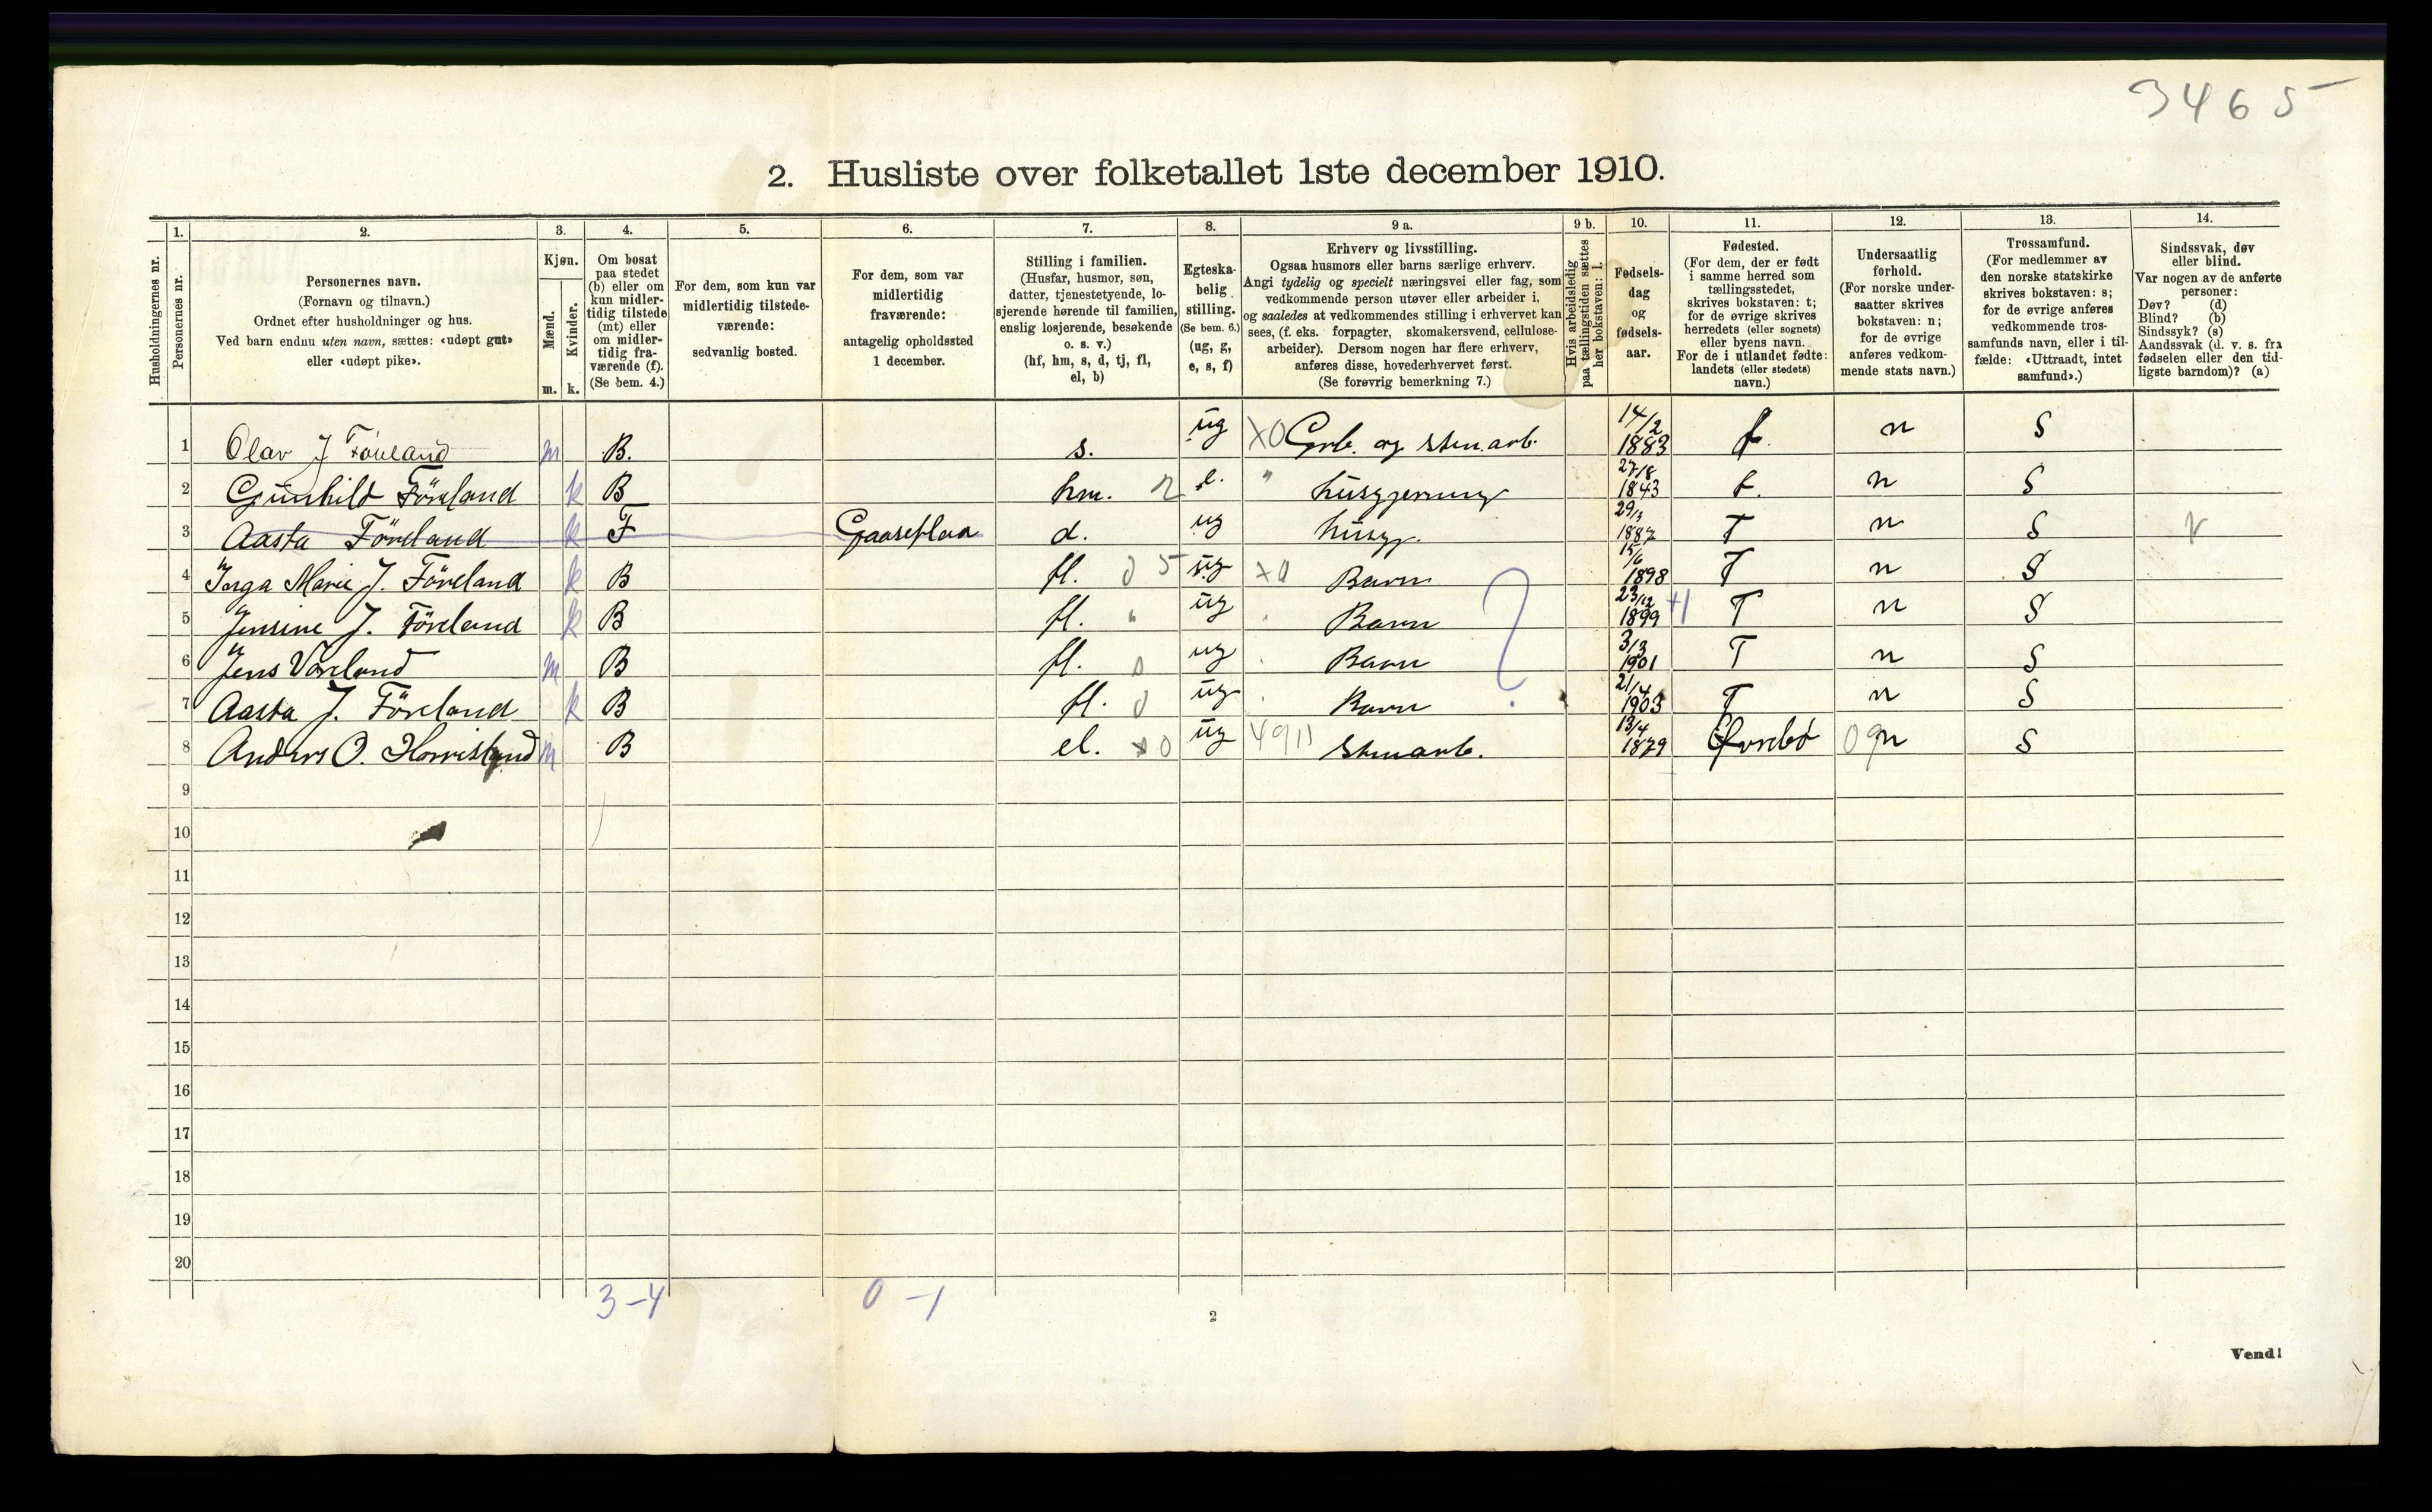 3465
2. Husliste over folketallet 1ste december 1910.
Husholdningernes nr.
1.
Personernes nr.
2.
Personernes navn.
(Fornavn og tilnavn.)
Ordnet efter husholdninger og hus.
Ved barn endnu uten navn, sættes: «udøpt gut»
eller «udøpt pike».
3.
Kjøn.
Mænd.
Kvinder.
m. k.
4.
Om bosat
paa stedet
(b) eller om
kun midler-
tidig tilstede
(mt) eller
om midler-
tidig fra-
værende (f).
(Se bem. 4.)
5.
For dem, som kun var
midlertidig tilstede-
værende:
sedvanlig bosted.
6.
For dem, som var
midlertidig
fraværende:
antagelig opholdssted
1 december.
7.
Stilling i familien.
(Husfar, husmor, søn,
datter, tjenestetyende, lo-
sjerende hørende til familien,
enslig losjerende, besøkende
o. s. v.)
(hf, hm, s, d, tj, fl,
el, b)
8.
Egteska-
belig
stilling.
(Se bem. 6.)
(ug, g,
e, s, f)
9 a.
Erhverv og livsstilling.
Ogsaa husmors eller barns særlige erhverv.
Angi tydelig og specielt næringsvei eller fag, som
vedkommende person utøver eller arbeider i,
og saaledes at vedkommendes stilling i erhvervet kan
sees, (f. eks. forpagter, skomakersvend, cellulose-
arbeider). Dersom nogen har flere erhverv,
anføres disse, hovederhvervet først.
(Se forøvrig bemerkning 7.)
9 b.
Hvis arbeidsledig
paa tællingstiden sættes
her bokstaven: l.
10.
Fødsels-
dag
og
fødsels-
aar.
11.
Fødested.
(For dem, der er født
i samme herred som
tællingsstedet,
skrives bokstaven: t;
for de øvrige skrives
herredets (eller sognets)
eller byens navn.
For de i utlandet fødte:
landets (eller stedets)
navn.)
12.
Undersaatlig
forhold.
(For norske under-
saatter skrives
bokstaven: n;
for de øvrige
anføres vedkom-
mende stats navn.)
13.
Trossamfund.
(For medlemmer av
den norske statskirke
skrives bokstaven: s;
for de øvrige anføres
vedkommende tros-
samfunds navn, eller i til-
fælde: «Uttraadt, intet
samfund».)
14.
Sindssvak, døv
eller blind.
Var nogen av de anførte
personer:
Døv? (d)
Blind? (b)
Sindssyk? (s)
Aandssvak (d. v. s. fra
fødselen eller den tid-
ligste barndom)? (a)
1 Olav J Föreland m B. s. ug X0 Grb. og stenarb. 14/2 1883 t. n S
2 Gunhild Föreland k B hm. e. " husgjerning 27/8 1843 t. n S
3 Aasta Föreland k F Gaaseflaa d. ug husgj. 29/3 1887 T n S
4 Inga Marie J. Föreland k B fl. 5 ug X0 Barn 15/6 1898 T n S
5 Jensine J. Föreland k B fl. " ug Barn 23/12 1899 +1 T n S
6 Jens Vöreland m B fl. ug Barn 3/3 1901 T n S
7 Aasta J. Föreland k B fl. ug Barn 21/4 1903 T n S
8 Anders O. m B el. ug Stenarb. 13/4 1879 Øvrebø 09 n S
9
10
11
12
13
14
15
16
17
18
19
20
3-4 0-1
2
Vend!